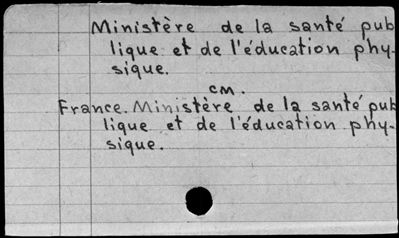 Ministère de la santé pub
lique et de l'éducation phy-
sique.
cm.
France. Ministère de la santé pub
lique et de l'éducation phy-
sique.